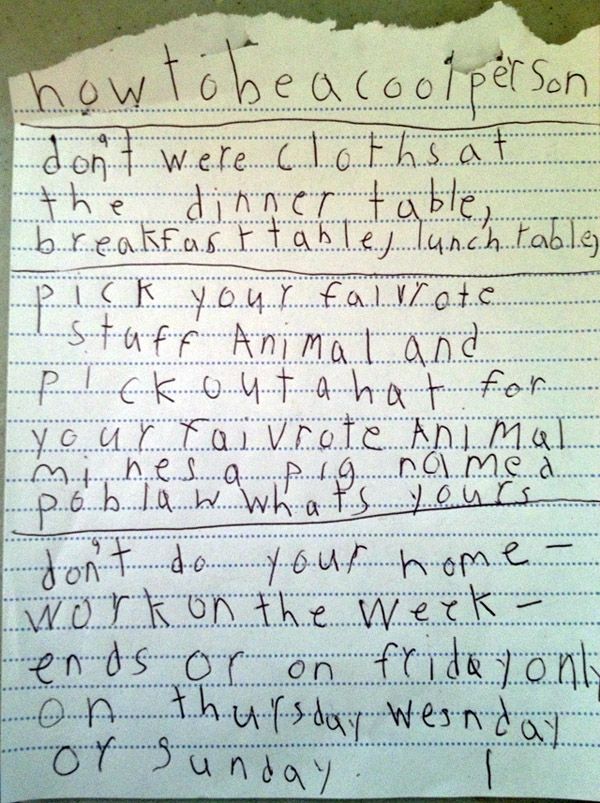 how to be a cool person
don't were cloths at
the dinner table,
breakfast table, lunch table,
pick your faivrote
staff Animal and
pick out a hat for
your faivrote Animal
mines a pig named
poblaw whats yours
don't do your home-
work on the week-
ends or on friday only
on thursday wesnday
or sunday.